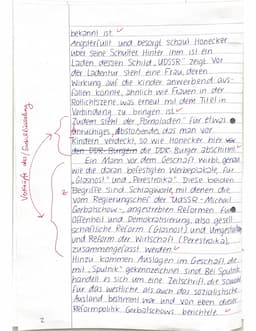 bekannt ist
Angsterfüllt und besorgt schaut Honecker
über seine Schulter. Hinter ihm ist ein
Laden, dessen Schild „UDSSR" zeigt. Vor
der Ladentür steht eine Frau, deren
Wirkung auf die Kinder anwerbend aus-
fallen könnte, ähnlich wie Frauen in der
Rotlichtszene, was erneut mit dem Titel in
Verbindung zu bringen ist.
Zudem steht der "Pornoladen" für etwas
Anrüchiges, Abstoßendes, das man vor
Kindern versteckt, so wie Honecker hier vor
den DDR-Bürgern die DDR-Bürger abschirmt.
Ein Mann vor dem Geschäft wirbt, genau
wie die daran befestigten Werbeplakate, für
„Glasnost" und „Perestroika". Diese beiden
Begriffe sind Schlagworte, mit denen die
vom Regierungschef der UdSSR - Michail
Gorbatschow -, angestrebten Reformen für
Offenheit und Demokratisierung, also gesell-
schaftliche Reform (Glasnost) und Umgestaltung
und Reform der Wirtschaft (Perestroika)
zusammengefasst werden.
Hinzu kommen Auslagen im Geschäft, die
mit „Sputnik" gekennzeichnet sind. Bei Sputnik
handelt es sich um eine Zeitschrift, die sowohl
für das westliche, als auch das sozialistische
Ausland bestimmt war und von eben dieser
Reformpolitik Gorbatschows berichtete.
2